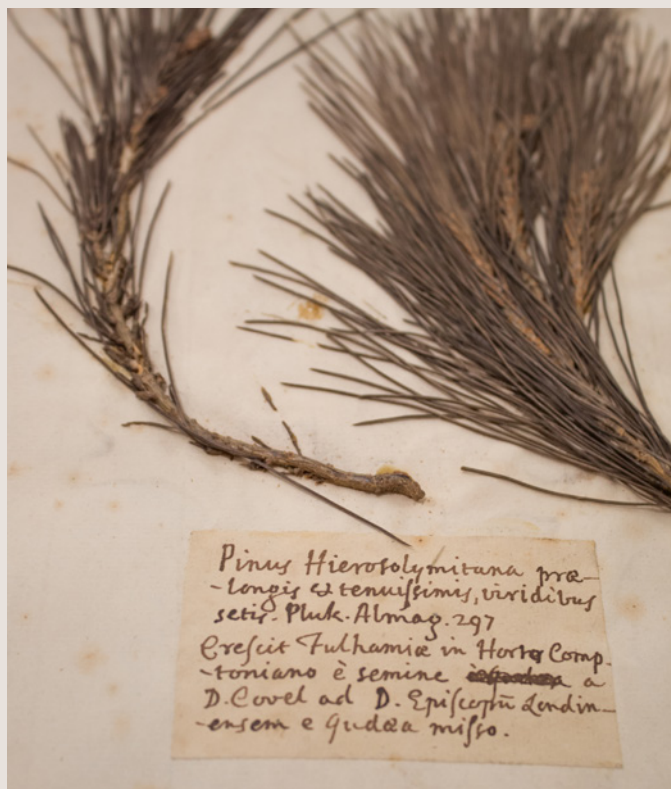 Pinus Hierosolymitana præ-
-longis & tenuiſsimis, viridibus
setis. Pluk. Almag. 297
Creſcit Fulhamiæ in Horto Comp-
-toniano è semine a
D. Covel ad D. Epiſcopū Londin-
-ensem e Judæa miſso.